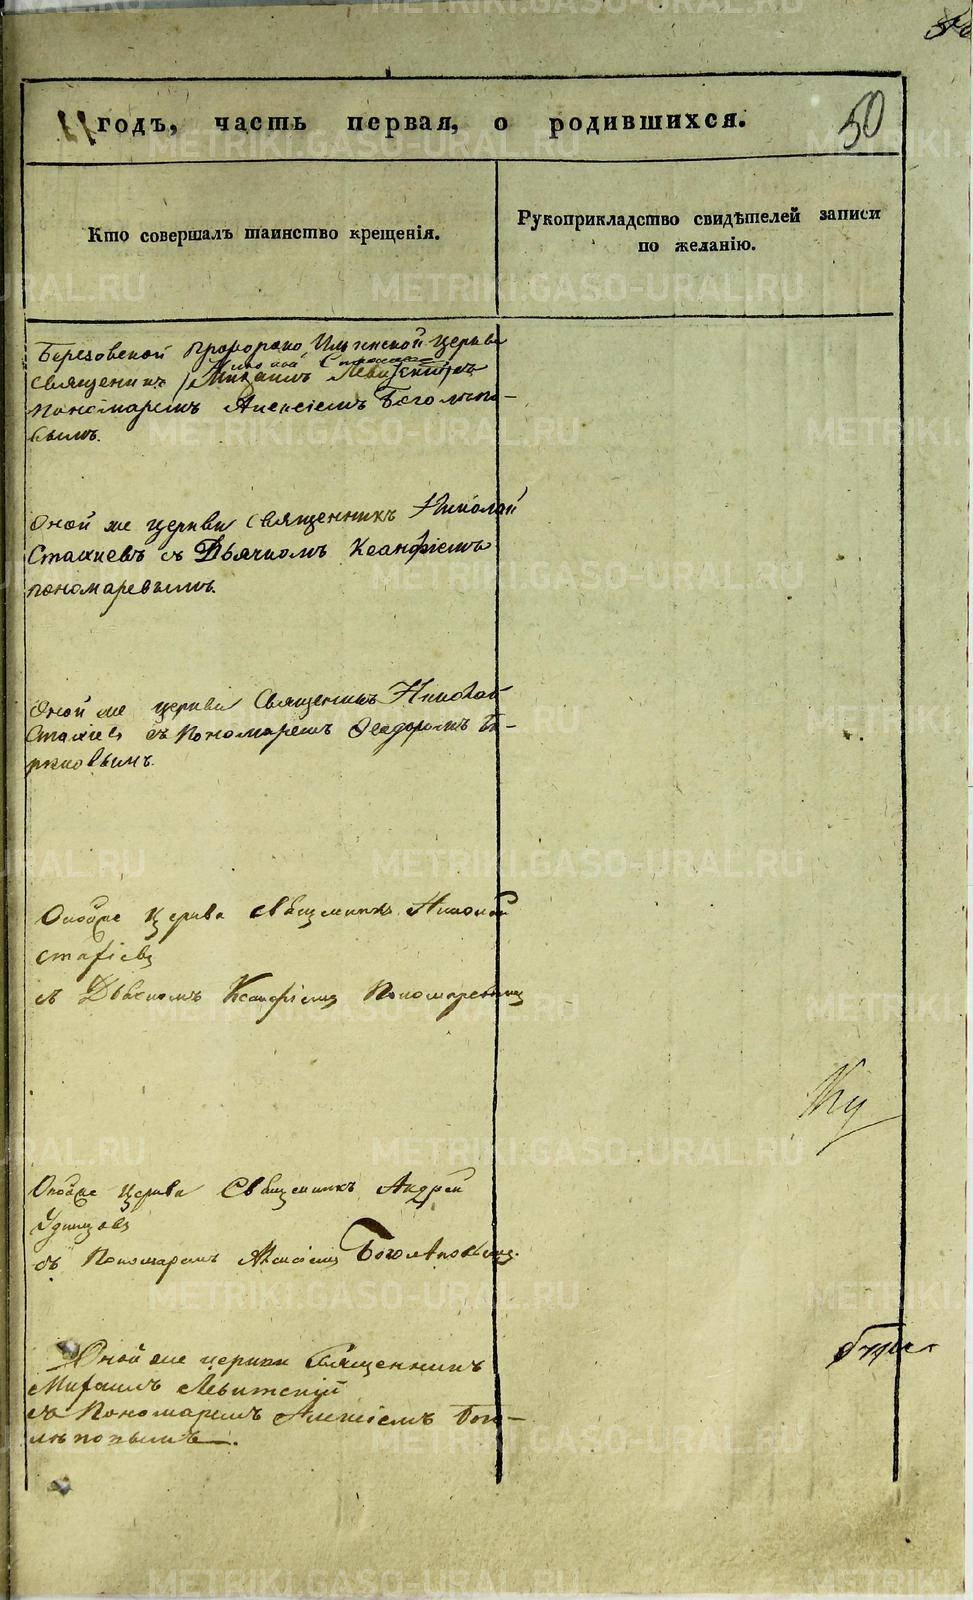 годъ, часть первая, о родившихся.
50
Кто совершалъ таинство крещенія.
Рукоприкладство свидѣтелей записи
по желанію.
Березовской Пророко Ильинской церкви
священникъ Михаилъ Левитскій съ
пономаремъ Алексіемъ Боголѣпо-
вымъ.
Оной же церкви священникъ Николай
Стахиевъ съ Дьячкомъ Ксанфіемъ
пономаревымъ.
Оной же церкви Священникъ Николай
Стахіевъ съ Пономаремъ Феодоромъ Би-
рюковымъ.
Оной же Церкви священникъ Николай
стафіевъ
съ Дьячкомъ Ксанфіемъ Пономаревымъ
Оной же Церкви Священникъ Андрей
Удинцовъ
съ Пономаремъ Алексіемъ Боголѣповымъ.
Оной же церкви Священникъ
Михаилъ Левитскій
съ Пономаремъ Алексіемъ Бого-
лѣповымъ.
METRIKI.GASO-URAL.RU